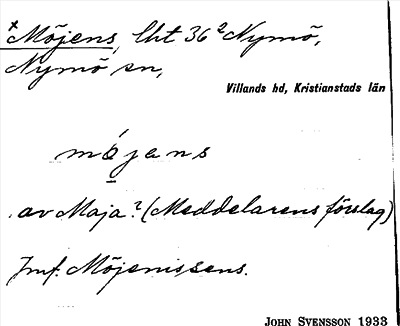 *Möjens, lht 36² Nymö,
Nymö sn,
Villands hd, Kristianstads län
mǫ́jens
av Maja? (Meddelarens förslag)
Jmf. Möjenissens.
JOHN SVENSSON 1933